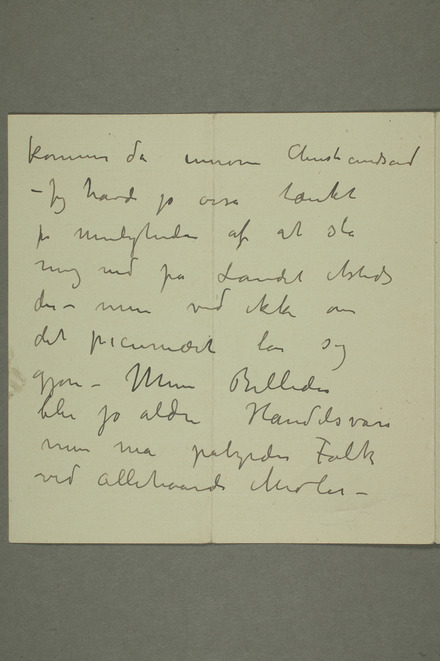 kommer da innom Christiandsand
– Jeg havde jo også tænkt
på muligheden af at slå
mig ned på Landet etsteds
der – men ved ikke om
det pecuniært lar sig
gjøre – Mine Billeder
blir jo aldri Handelsvare
men må påtvinges Folk
ved allehaande Midler –